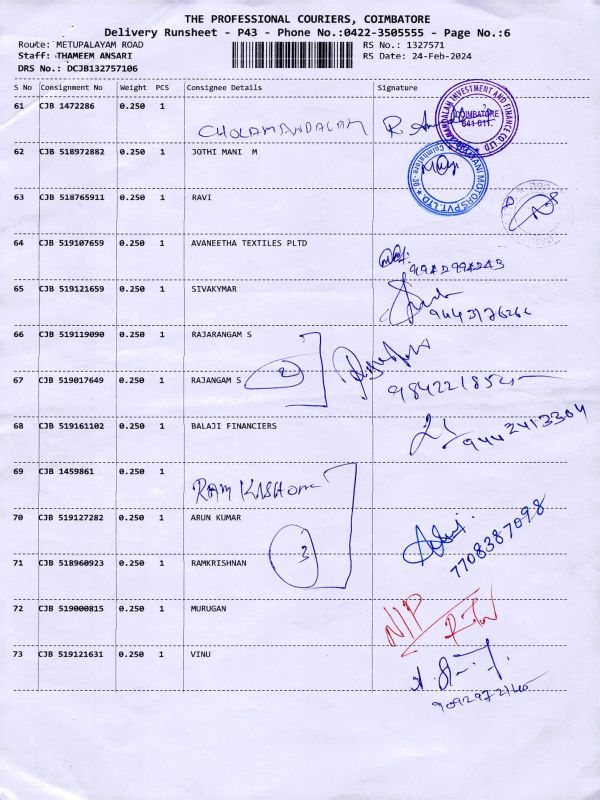 THE PROFESSIONAL COURIERS, COIMBATORE
Delivery Runsheet - P43 - Phone No.:0422-3505555 - Page No.:6
Route: METUPALAYAM ROAD RS No.: 1327571
Staff: THAMEEM ANSARI RS Date: 24-Feb-2024
DRS No.: DCJB132757106
S No Consignment No Weight PCS Consignee Details Signature
61 CJB 1472286 0.250 1 CHOLAMANDALAM
COIMBATORE
641 011.
62 CJB 518972882 0.250 1 JOTHI MANI M
63 CJB 518765911 0.250 1 RAVI
64 CJB 519107659 0.250 1 AVANEETHA TEXTILES PLTD
65 CJB 519121659 0.250 1 SIVAKYMAR
66 CJB 519119090 0.250 1 RAJARANGAM S
67 CJB 519017649 0.250 1 RAJANGAM S 2
68 CJB 519161102 0.250 1 BALAJI FINANCIERS
9442413304
69 CJB 1459861 0.250 1
70 CJB 519127282 0.250 1 ARUN KUMAR
7708387098
71 CJB 518960923 0.250 1 RAMKRISHNAN 3
72 CJB 519000815 0.250 1 MURUGAN N/P
73 CJB 519121631 0.250 1 VINU